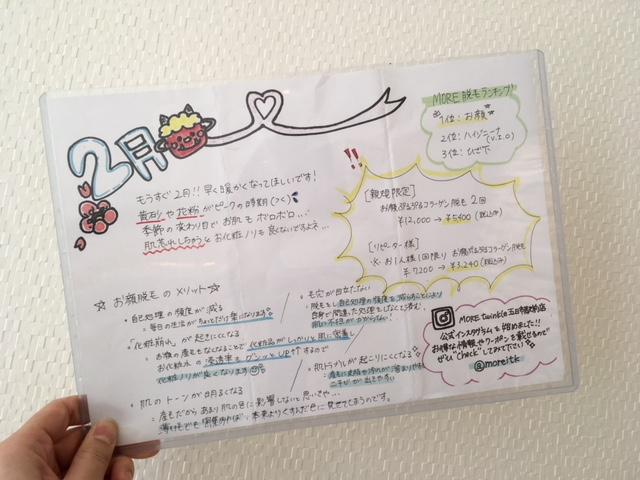 2月
もうすぐ2月!!早く暖かくなってほしいです!
黄砂や花粉がピークの時期(つく)
季節の変わり目でお肌もボロボロ…
肌荒れしちゃうとお化粧ノリも良くないですよネ…
MORE脱毛ランキング!
1位:お顔
2位:ハイジニーナ
(V.I.O)
3位:ひざ下
!!
[新規限定]
お顔ぷるぷるコラーゲン脱毛 2回
¥12,000→¥5400(税込み)
[リピーター様]
※お1人様1回限り お顔ぷるぷるコラーゲン脱毛
¥7200→¥3,240(税込み)
☆お顔脱毛のメリット☆
・自己処理の頻度が減る
=毎日の生活がちょっとだけ楽になります
・化粧崩れが起きにくくなる
お顔の産毛をなくすることで化粧品がしっかりと肌に密着し
お化粧水の浸透率もグンッとUP↑するので
化粧ノリが良くなります
・肌のトーンが明るくなる
=産毛だからあまり肌の色に影響しないと思いきや…
薄い毛でも密集すれば本来よりくすんだ色に見せてしまうのです。
・毛穴が目立たない
=脱毛をし自己処理の頻度を減らすことにより
自身で間違った処理をしなくて済む。
肌に不担がかからない!
・肌トラブルが起こりにくくなる
=産毛に皮脂や汚れが溜まりやすく
ニキビが出来やすい
MORE twinkle五日市駅前店
公式インスタグラムを始めました!!
お得な情報やクーポンを載せるので
ぜひ"check"してみて下さい
@moreitk